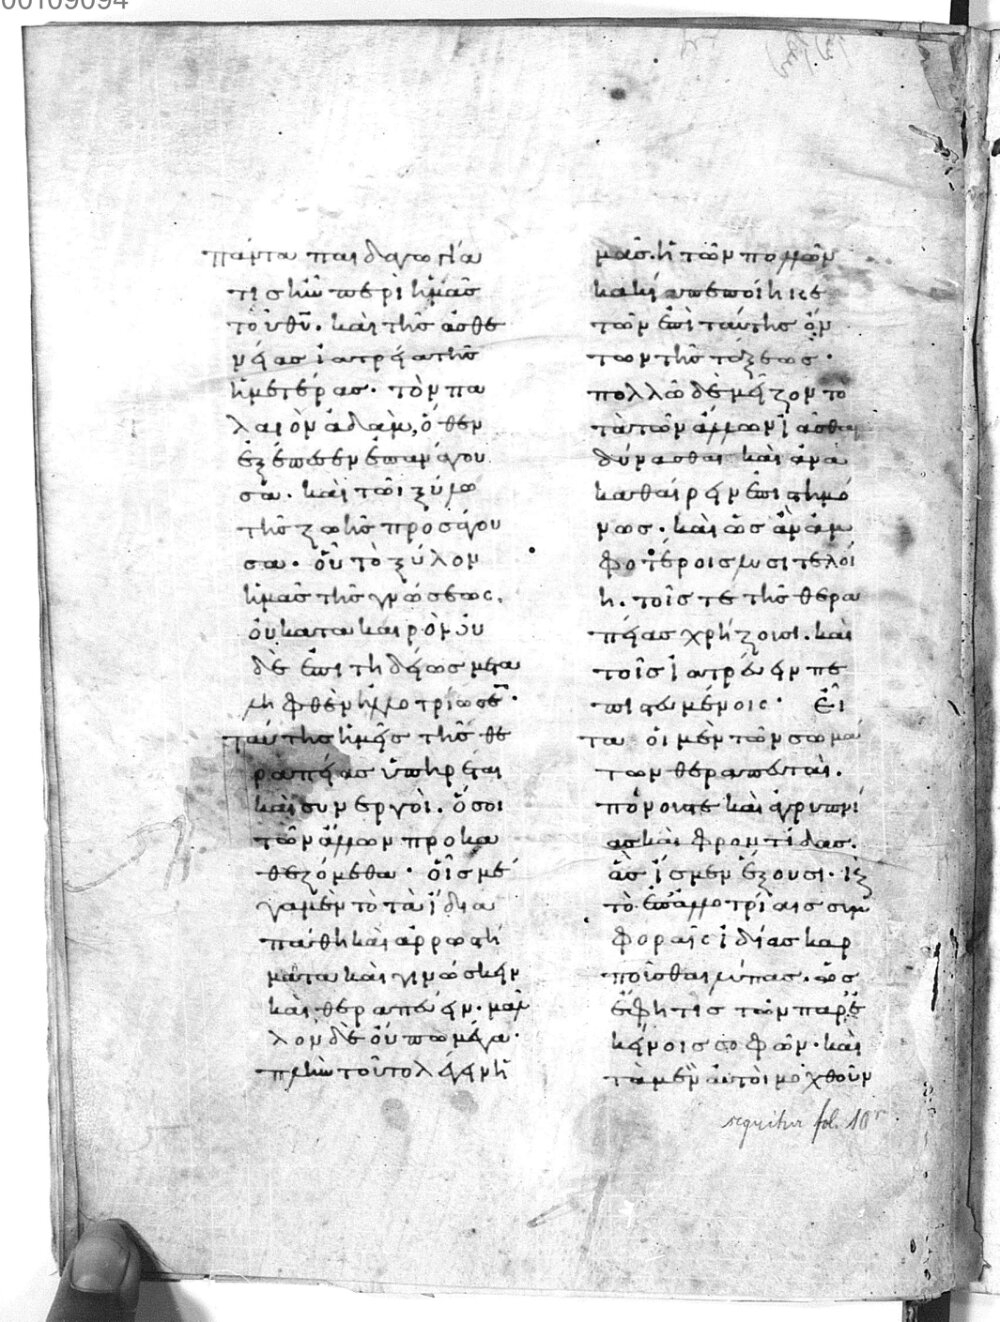 00109094
πάντα παιδαγωγία
τίς ἦν περὶ ἡμᾶς
τοῦ θ̅υ̅. καὶ τῆς ἀσθε
νείας ἰατρεία τῆς
ἡμετέρας· τὸν πα
λαιὸν ἀδὰμ, ὅθεν
ἐξέπεσεν ἐπανάγου
σα. καὶ τῶι ξύλω
τῆς ζωῆς προσάγου
σα· οὗ τὸ ξύλον
ἡμᾶς τῆς γνώσεως,
οὐ κατα καιρὸν οὐ
δὲ ἐπιτηδείως μετα
ληφθὲν ἠλλοτρίωσε·
ταύτης ἡμεῖς τῆς θε
ραπείας ὑπηρέται
καὶ συνεργοὶ. ὅσοι
τῶν ἄλλων προκα
θεζόμεθα· οἷς μέ
γα μὲν τὸ τὰ ἴδια
πάθη καὶ ἀρρωστή
ματα καὶ γινώσκειν
καὶ θεραπεύειν. μᾶλ
λον δὲ οὔπω μέγα·
πλὴν τοῦτο λέγειν ἡ
μᾶς. ἡ τῶν πολλῶν
κακία πεποίηκε
τῶν ἐπὶ ταύτης ὄν
των τῆς τάξεως·
πολλῶ δὲ μεῖζον τὸ
τὰ τῶν ἄλλων ἰᾶσθαι
δύνασθαι καὶ ἀνα
καθαίρειν ἐπιστημό
νως. καὶ ὡς ἂν ἀμ
φοτέροις λυσιτελοί
η. τοῖς τε τῆς θερα
πείας χρήζουσι. καὶ
τοῖς ἰατρεύειν πε
πιστευμένοις· Εἶ
τα οἱ μὲν τῶν σωμά
των θεραπευταὶ.
πόνους τε καὶ ἀγρυπνί
ας καὶ φροντίδας.
ἃς ἴσμεν ἕξουσι. κ̀
τὸ ἐπ' ἀλλοτρίαις συμ
φοραῖς ἰδίας καρ
ποῦσθαι λύπας. ὡς
ἔφη τις τῶν παρ' ἐ
κείνοις σοφῶν. καὶ
τὰ μὲν αὐτοὶ μοχθοῦν
sequitur fol. 10r